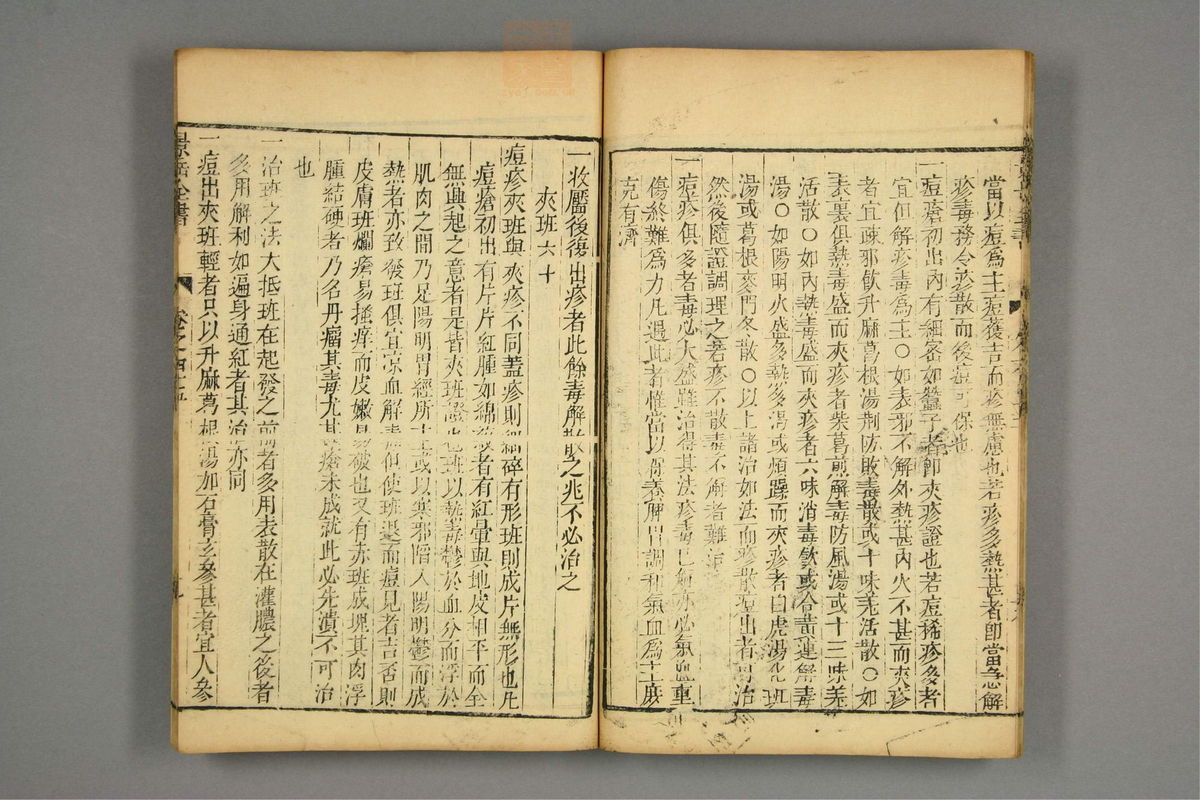 當以痘爲主痘獲吉而疹無慮也若疹多熱甚者卽當急解
疹毒務令疹散而後痘可保也
一痘瘡初出內有細密如蠶子者卽夾疹證也若痘稀疹多者
宜但解疹毒爲主○如表邪不解外熱甚內火不甚而夾疹
者宜疎邪飲升麻葛根湯荆防敗毒散或十味羌活散○如
表裏俱熱毒盛而夾疹者柴葛煎解毒防風湯或十三味羌
活散○如內熱毒盛而夾疹者六味消毒飲或合黃連解毒
湯○如陽明火盛多熱多渴或煩躁而夾疹者白虎湯化班
湯或葛根麥門冬散○以上諸治如法而疹散痘出者可治
然後隨證調理之若疹不散毒不解者難治
一痘疹俱多者毒必大盛雖治得其法疹毒已解亦必氣血重
傷終難爲力凡遇此者惟當以保養脾胃調和氣血爲主庶
克有濟
一收靨後復出疹者此餘毒解散之兆不必治之
夾班六十
痘疹夾班與夾疹不同蓋疹則細碎有形班則成片無形也凡
痘瘡初出有片片紅腫如綿紋者有紅暈與地皮相平而全
無與起之意者是皆夾班證也班以熱毒鬱於血分而浮於
肌肉之間乃足陽明胃經所主或以寒邪陷入陽明鬱而成
熱者亦致發班俱宜凉血解毒但使班退而痘見者吉否則
皮膚班爛瘡易搔痒而皮嫩易破也又有赤班成塊其肉浮
腫結硬者乃名丹瘤其毒尤甚瘡未成就此必先潰不可治
也
一治班之法大抵班在起發之前者多用表散在灌膿之後者
多用解利如遍身通紅者其治亦同
一痘出夾班輕者只以升麻葛根湯加石膏玄參甚者宜人參
景岳全書
卷之四十五